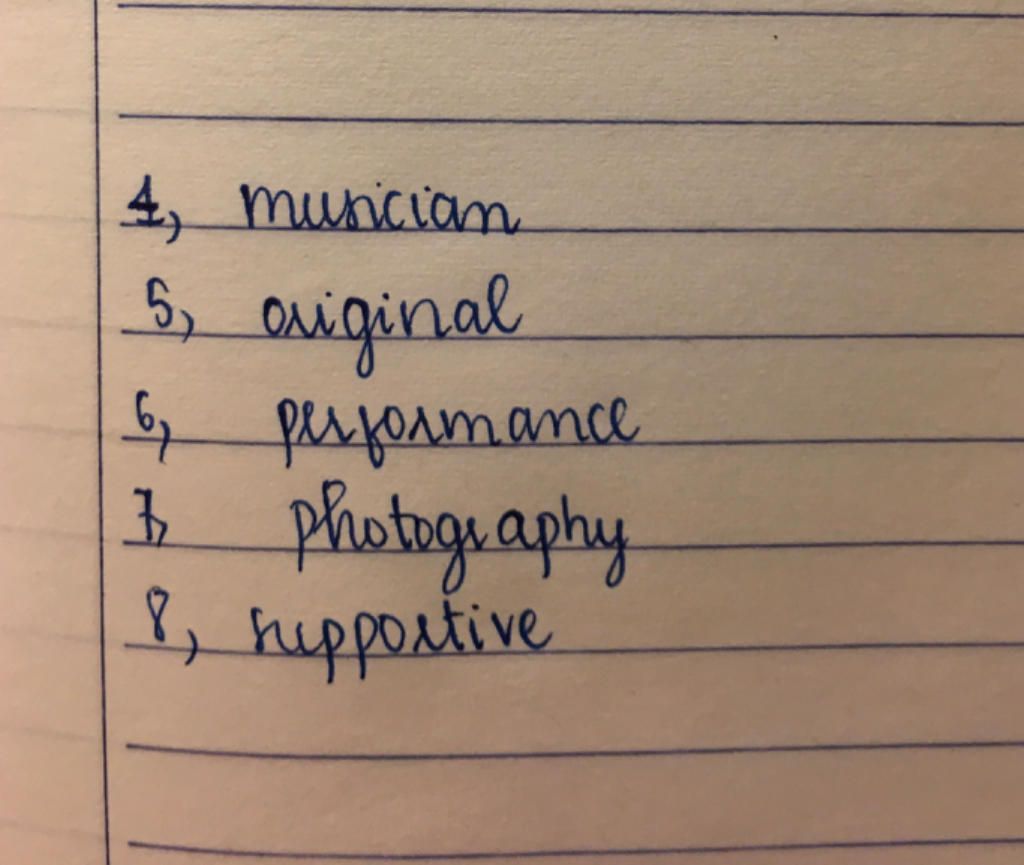 4, musician
5, original
6, performance
7, photography
8, supportive